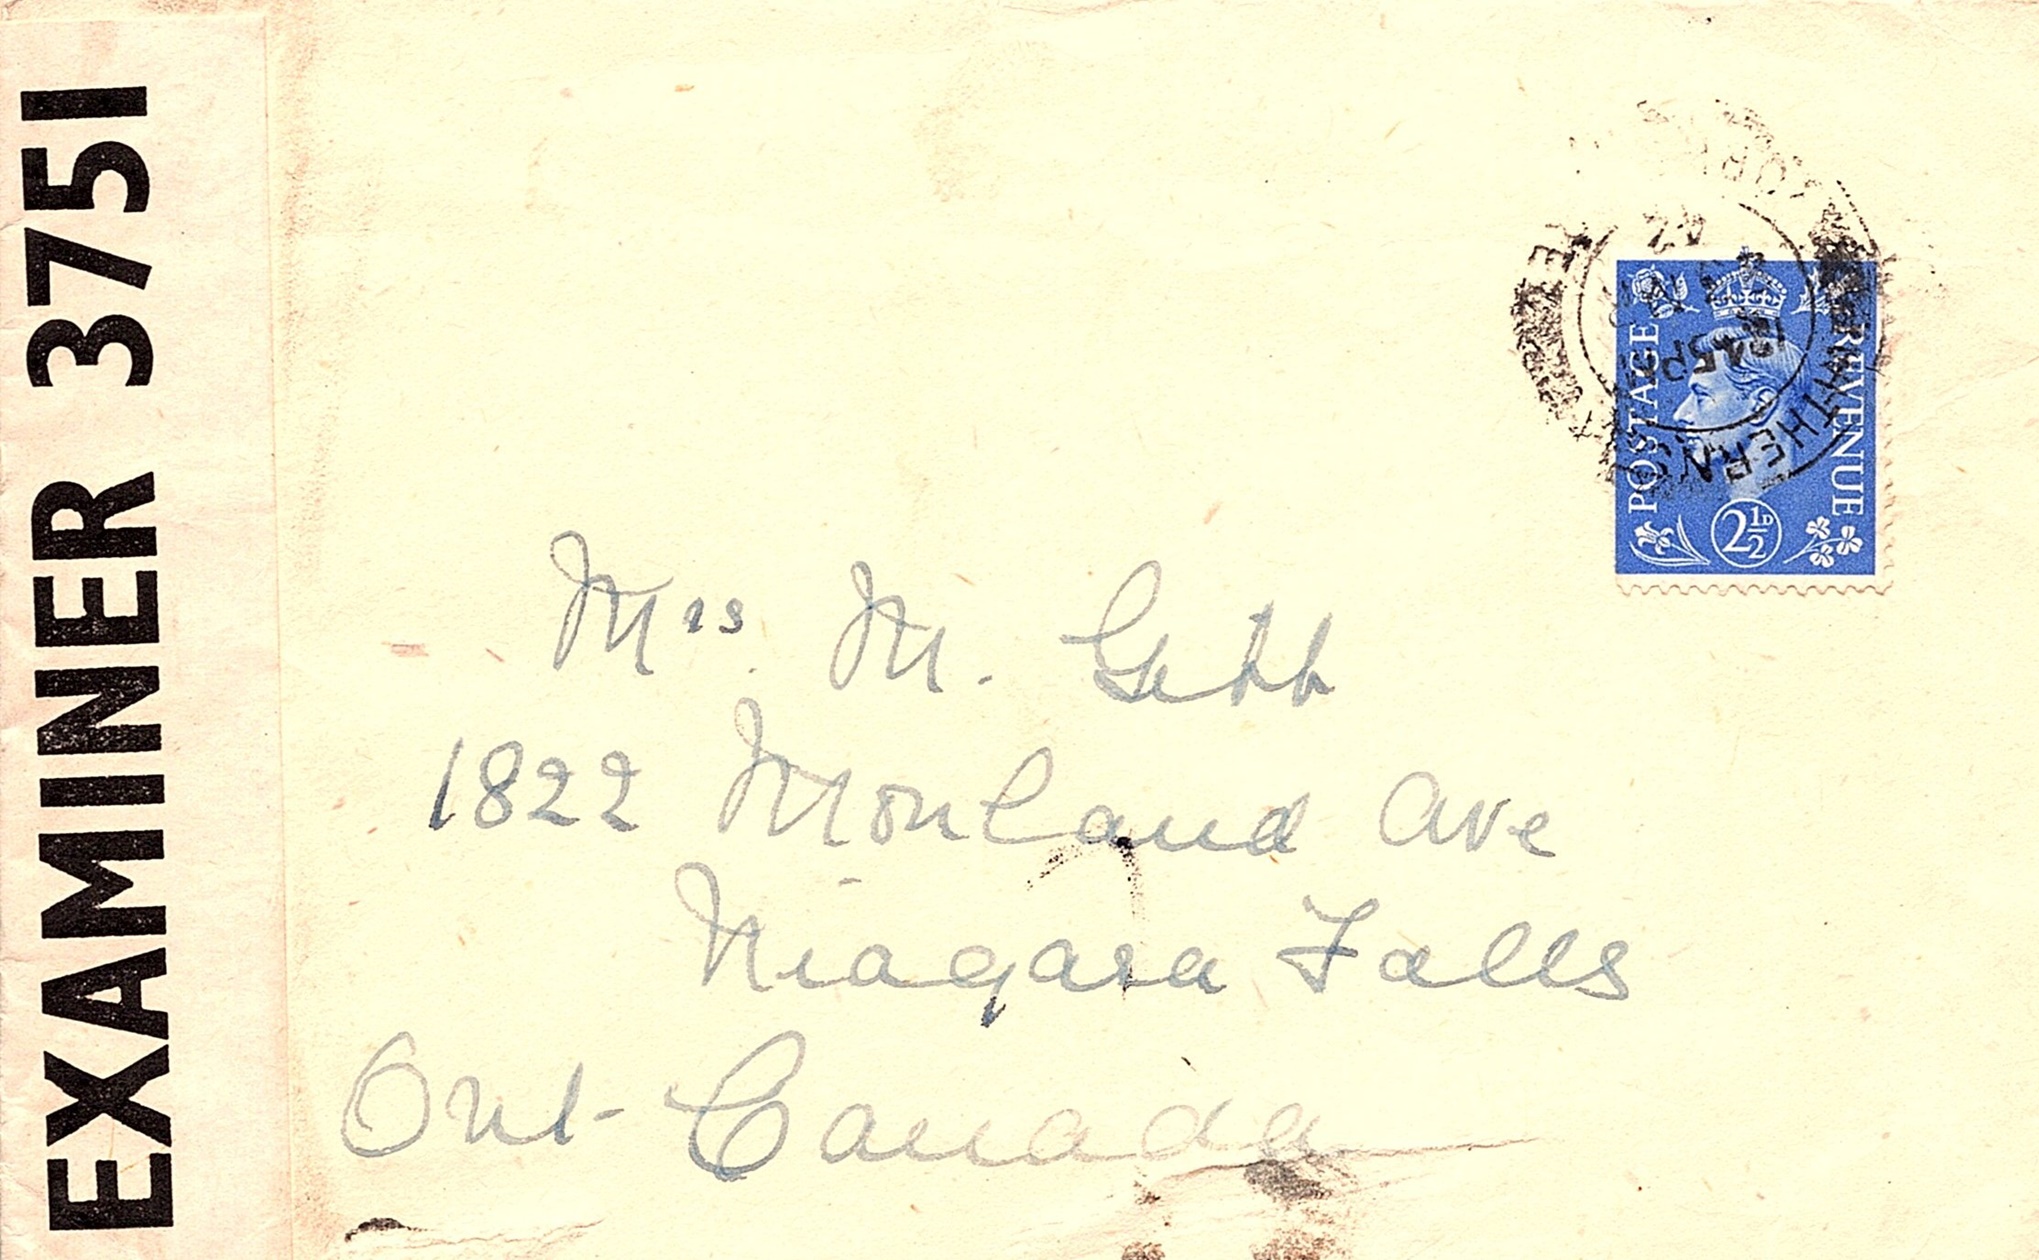 EXAMINER 3751
POSTAGE
REVENUE
2½D
42
12 45 PM
Mrs. M. Gibb
1822 Monland Ave
Niagara Falls
Ont- Canada